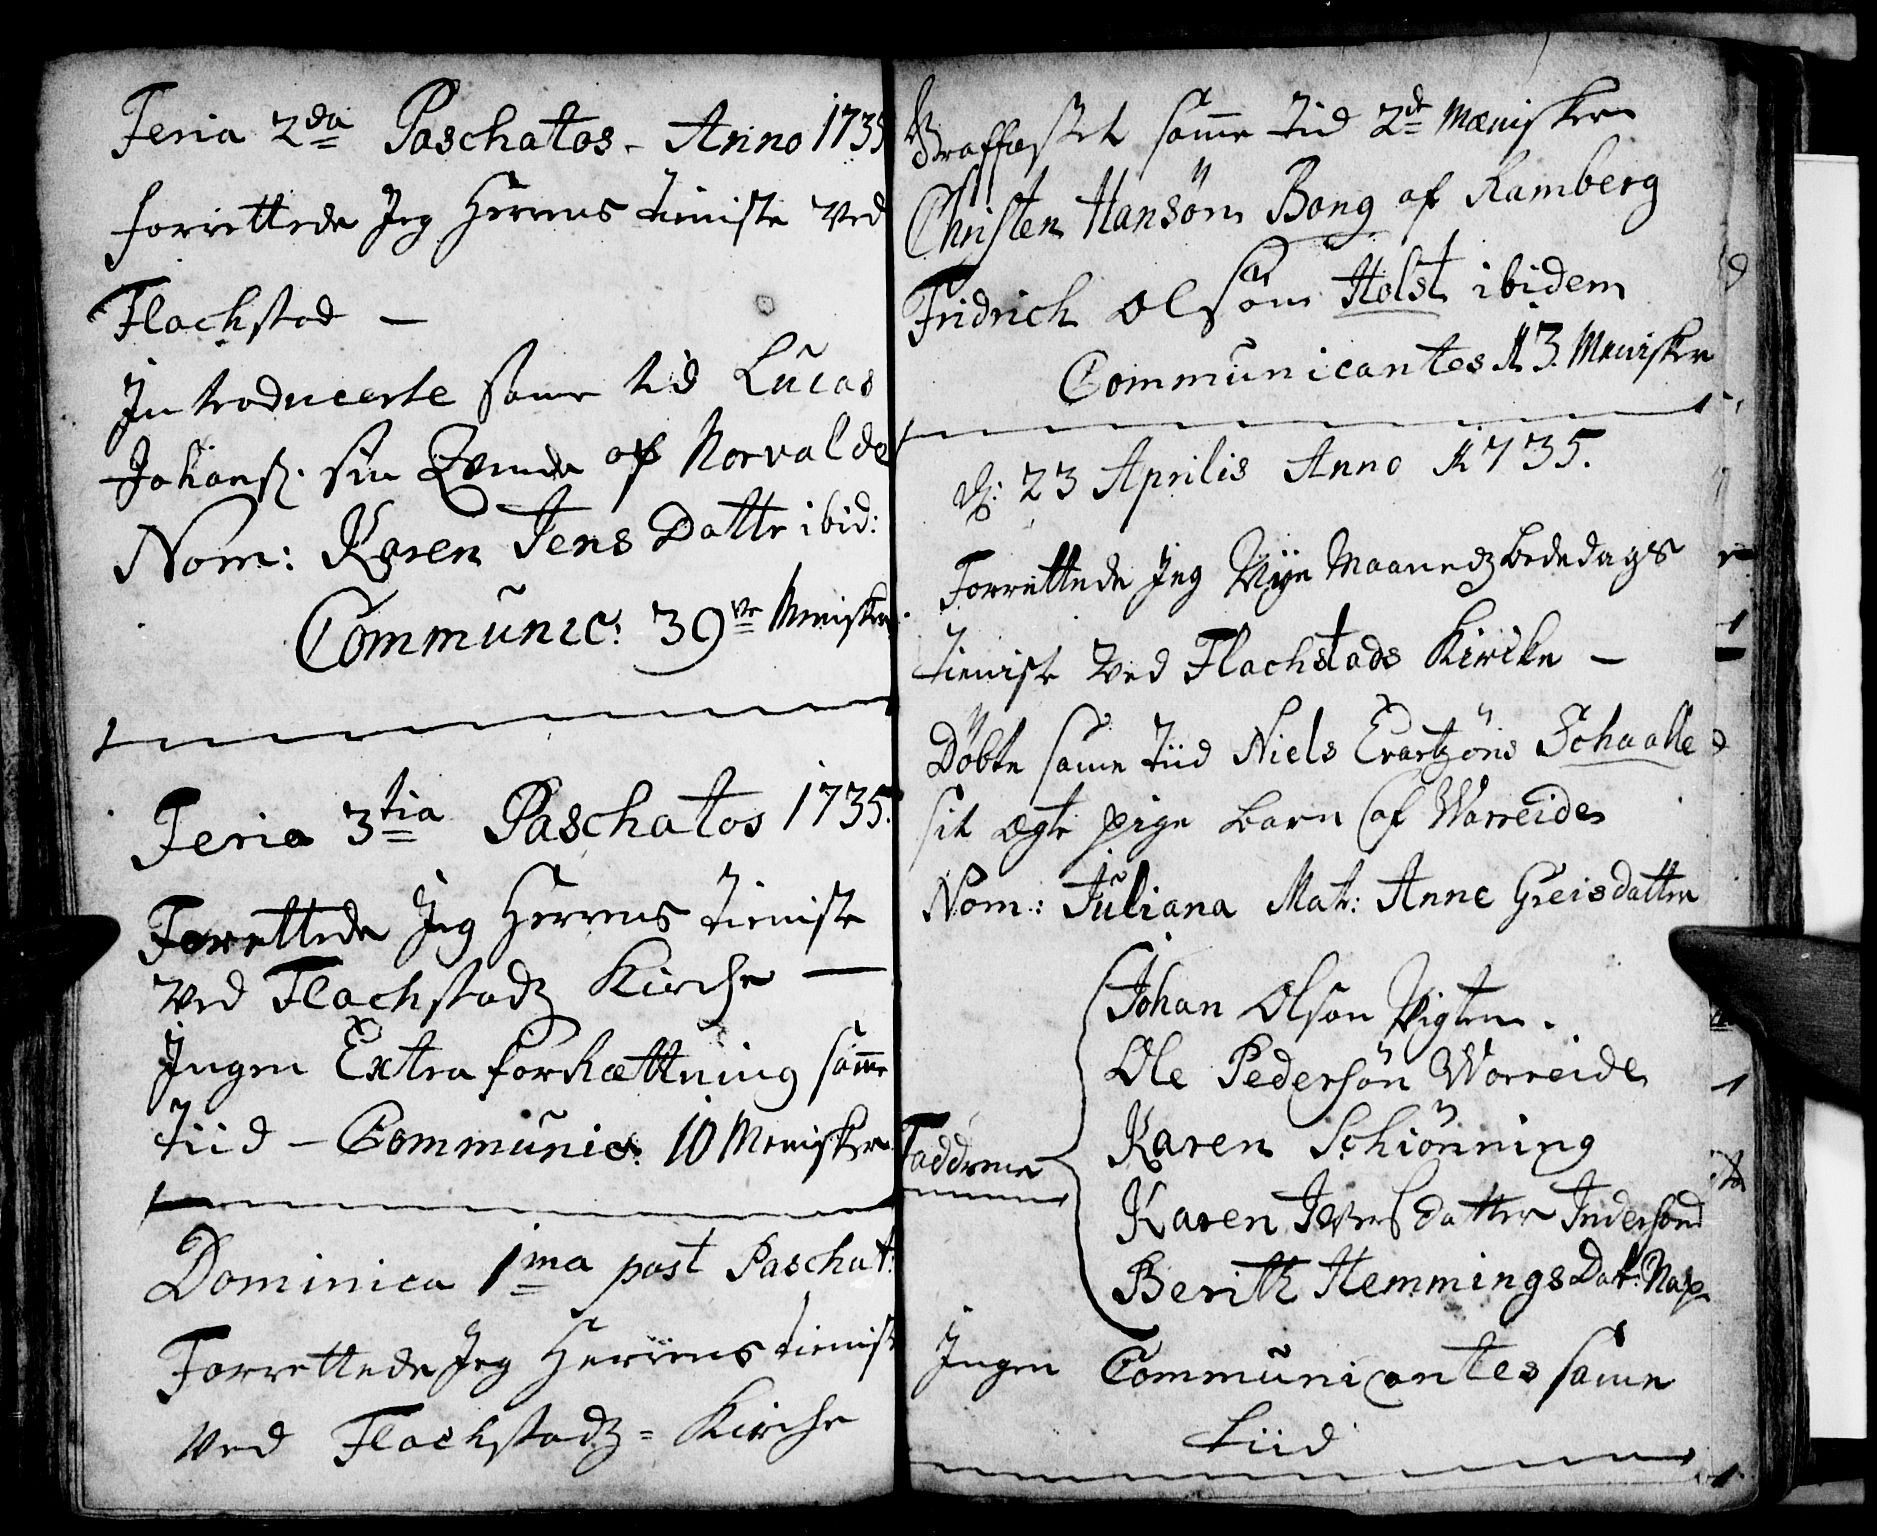 Feria 2da Paschatos - Anno 1735
forrettede Jeg Herrens tieniste ved
Flachstad —
Introducerte same tid Lucas
Johans: sin Qvinde af Norvalde
Nom: Karen Jens Datte ibid:
Communic: 39ve Menisker
Feria 3tia Paschatos 1735.
Forrettede Jeg Herrens tieniste
ved Flachstadz Kirche —
Ingen Extra forrættning samme
tiid - Communic: 10 Menisker
Dominica 1ma post Paschat:
Forrettede Jeg Herrens tienist
ved Flachstadz = Kirche
Graffæstet same tid 2de Mænisker
Christen Hansøn Bong af Ramberg
Fridrich Olsøn Holst ibidem
Communicantes 13. Menisker
d: 23 Aprilis Anno 1735.
Forrettede Jeg Nye Maanedz bededags
tieniste ved Flachstads Kircke —
Døbte same tiid Niels Evartzøns Schaalle
sit ægte pige barn af Warreide
Nom: Juliana Mat: Anne Greisdatter
Johan Olsøn Vigten.
Ole Pedersøn Worreide
Karen Schiønning
Faddrene
Karen Ivers datter Indersond
Berith Hemmings Dat: Nap
Ingen Communicantes same
tiid